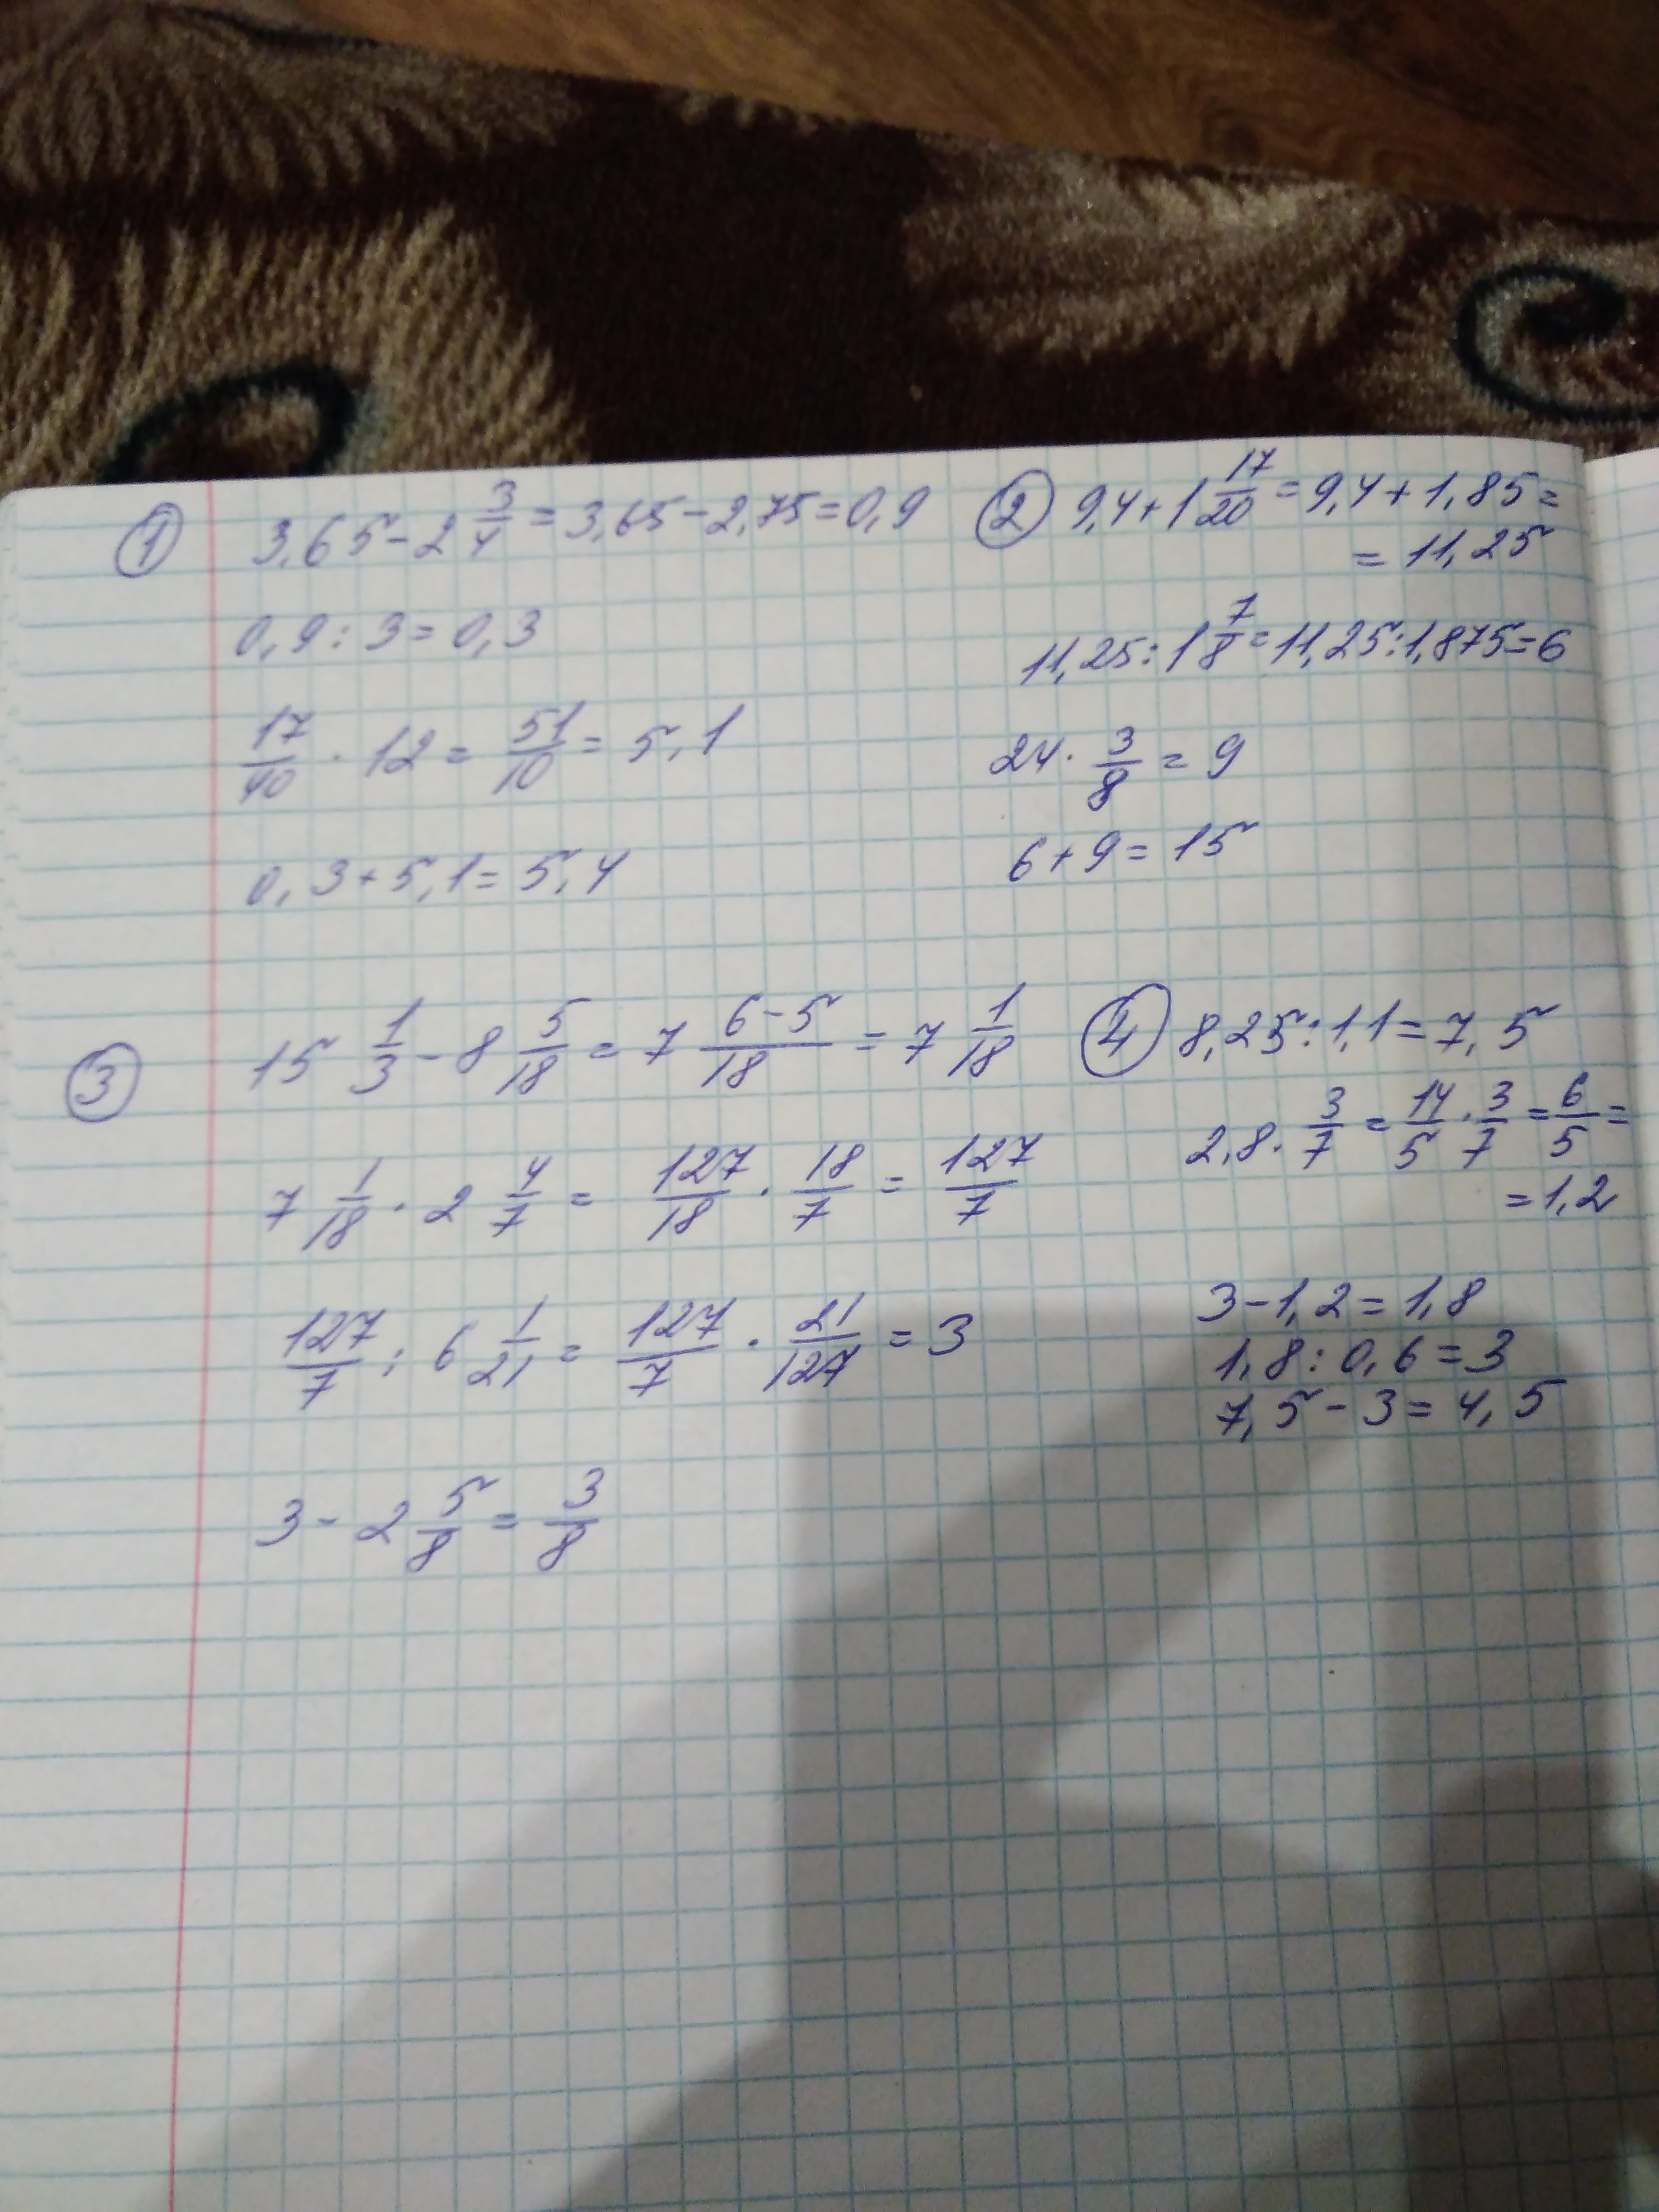 ① 3,65 - 2 3/4 = 3,65 - 2,75 = 0,9
0,9 : 3 = 0,3
17/40 · 12 = 51/10 = 5,1
0,3 + 5,1 = 5,4
② 9,4 + 1 17/20 = 9,4 + 1,85 =
= 11,25
11,25 : 1 7/8 = 11,25 : 1,875 = 6
24 · 3/8 = 9
6 + 9 = 15
③ 15 1/3 - 8 5/18 = 7 6-5/18 = 7 1/18
7 1/18 · 2 4/7 = 127/18 · 18/7 = 127/7
127/7 : 6 1/21 = 127/7 · 21/127 = 3
3 - 2 5/8 = 3/8
④ 8,25 : 1,1 = 7,5
2,8 · 3/7 = 14/5 · 3/7 = 6/5 =
= 1,2
3 - 1,2 = 1,8
1,8 : 0,6 = 3
7,5 - 3 = 4,5